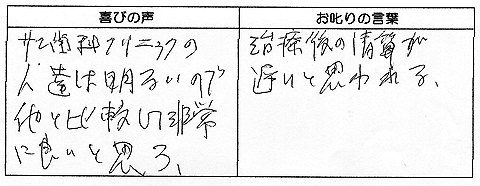 喜びの声
サエ歯科クリニックの
人達は明るいので
他と比較して非常
に良いと思う、
お叱りの言葉
治療後の清算が
遅いと思われる、